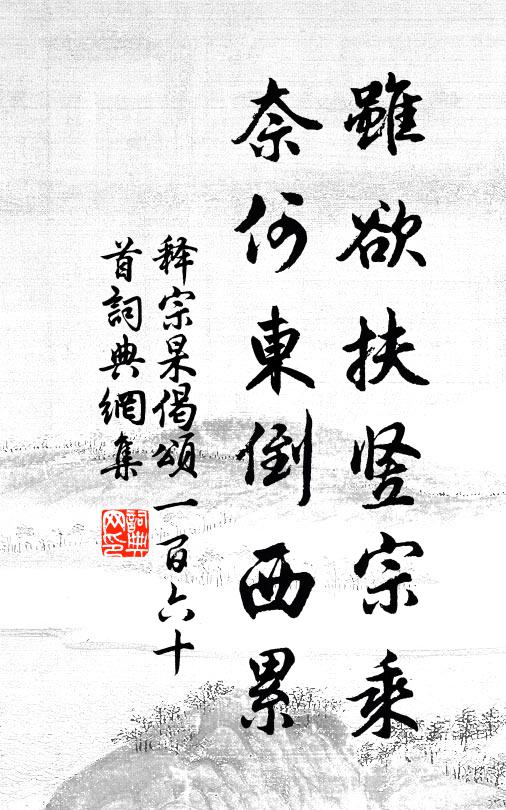 雖欲扶竖宗乘
奈何東倒西累
释宗杲偈頌一百六十
首詞典網集
詞典
网印